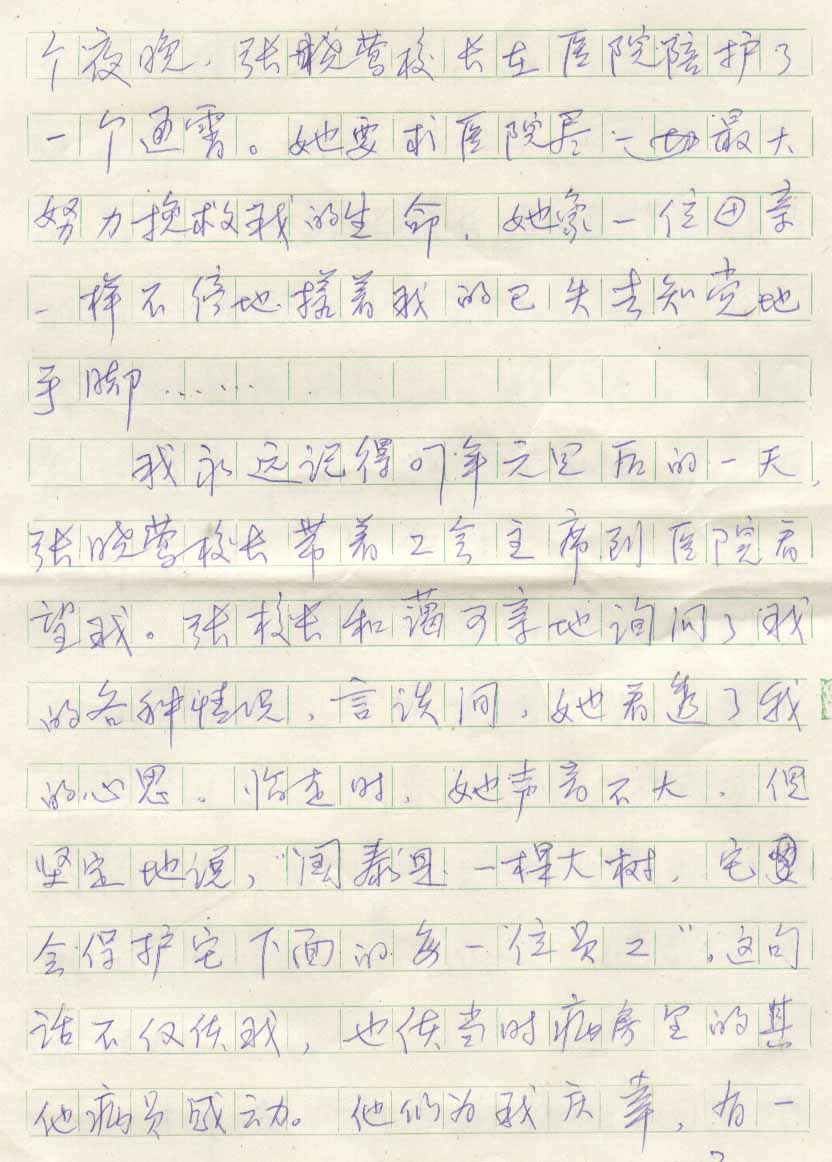 个夜晚，张晓莺校长在医院陪护了
一个通霄。她要求医院尽一切最大
努力挽救我的生命，她象一位母亲
一样不停地搓着我的已失去知觉地
手脚……
我永远记得07年元旦后的一天，
张晓莺校长带着工会主席到医院看
望我。张校长和蔼可亲地询问了我
的各种情况，言谈间，她看透了我
的心思。临走时，她声音不大，但
坚定地说，“国泰是一棵大树，它
会保护它下面的每一位员工”。这句
话不仅使我，也使当时病房里的其
他病员感动。他们为我庆幸，有一